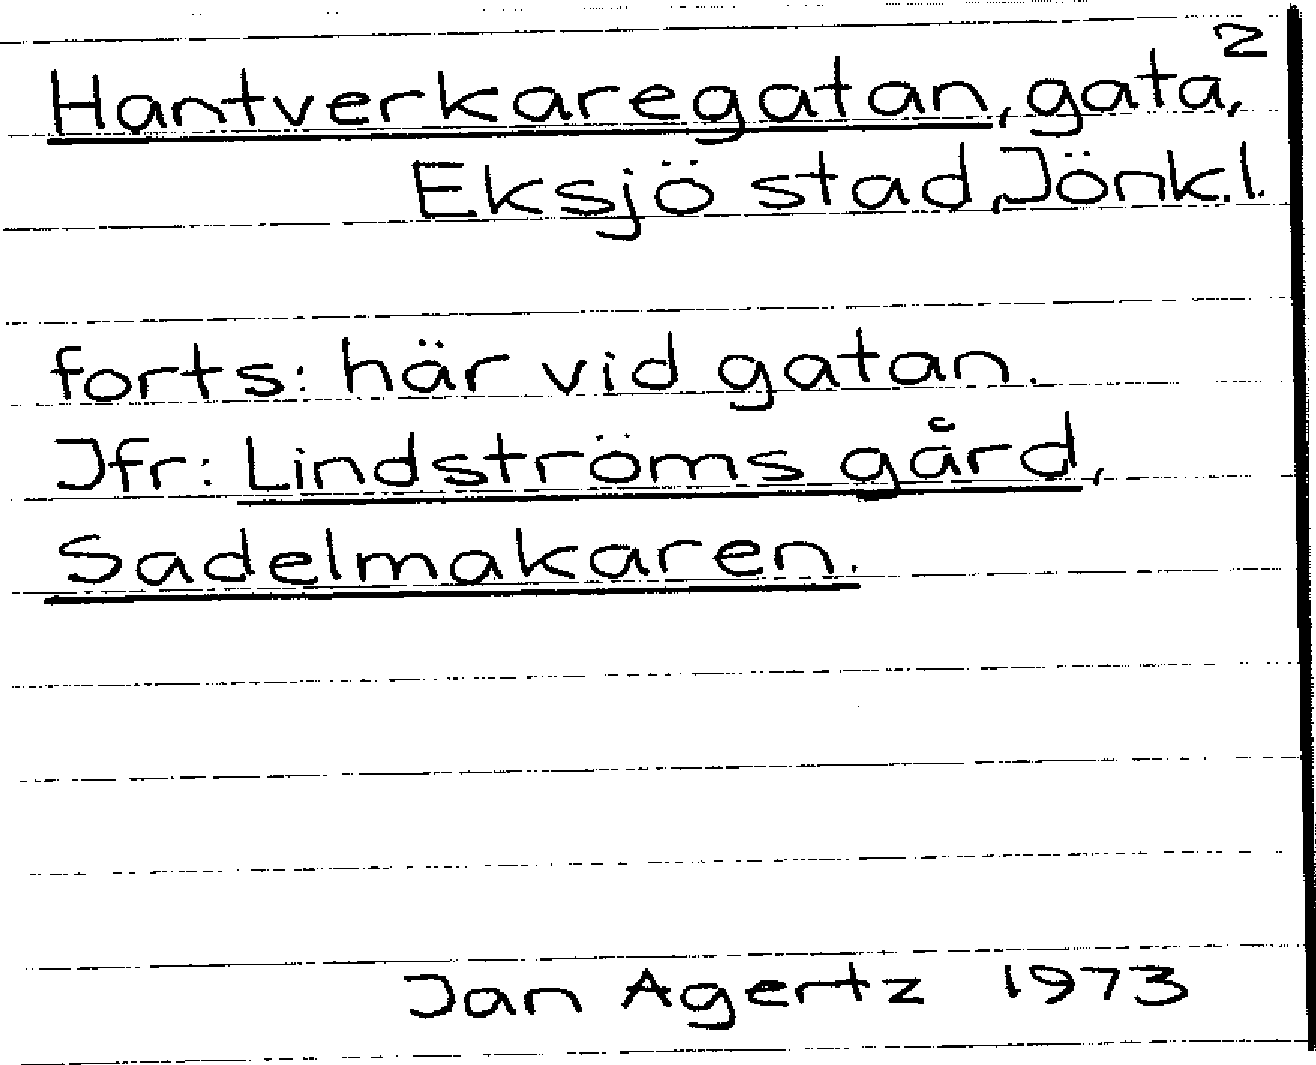 2
Hantverkaregatan, gata,
Eksjö stad, Jönk.l.
forts: här vid gatan.
Jfr: Lindströms gård,
Sadelmakaren.
Jan Agertz 1973